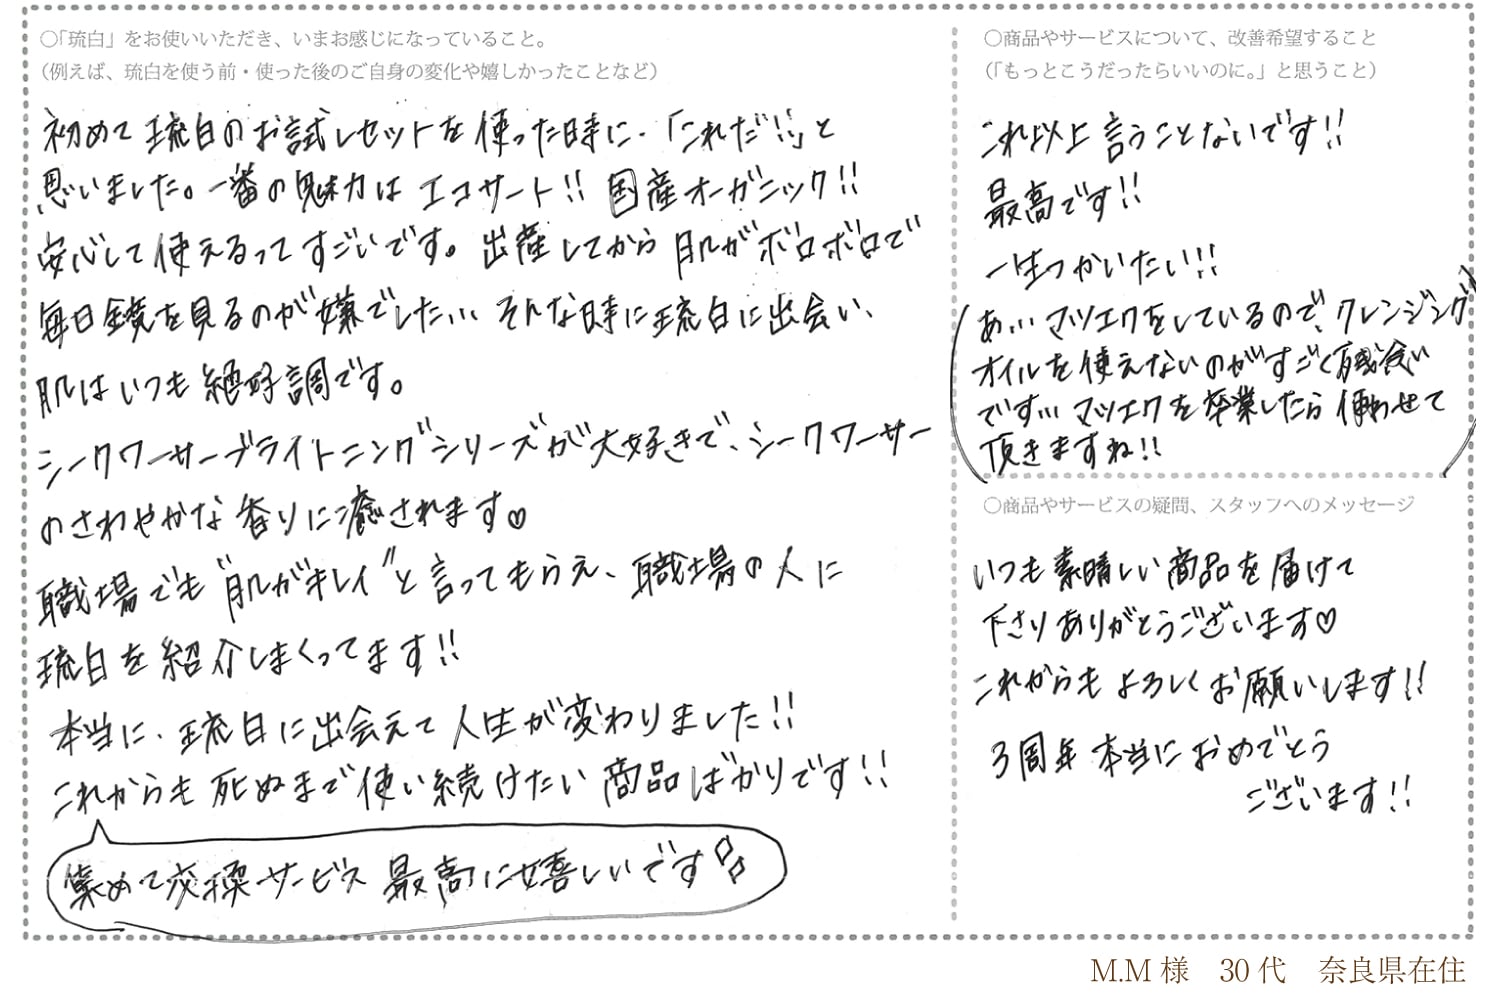 ○「琉白」をお使いいただき、いまお感じになっていること。
（例えば、琉白を使う前・使った後のご自身の変化や嬉しかったことなど）
初めて琉白のお試しセットを使った時に、「これだ!!」と
思いました。一番の魅力はエコサート!! 国産オーガニック!!
安心して使えるってすごいです。出産してから肌がボロボロで
毎日鏡を見るのが嫌でした... そんな時に琉白に出会い、
肌はいつも絶好調です。
シークワーサーブライトニングシリーズが大好きで、シークワーサー
のさわやかな香りに癒されます♡
職場でも"肌がキレイ"と言ってもらえ、職場の人に
琉白を紹介しまくってます!!
本当に、琉白に出会えて人生が変わりました!!
これからも死ぬまで使い続けたい商品ばかりです!!
集めて交換サービス最高に嬉しいです
○商品やサービスについて、改善希望すること
（「もっとこうだったらいいのに。」と思うこと）
これ以上言うことないです!!
最高です!!
一生つかいたい!!
(あ... マツエクをしているので、クレンジング
オイルを使えないのがすごく残念
です... マツエクを卒業したら使わせて
頂きますね!!)
○商品やサービスの疑問、スタッフへのメッセージ
いつも素晴しい商品を届けて
下さりありがとうございます♡
これからもよろしくお願いします!!
3周年本当におめでとう
ございます!!
M.M 様　30 代　奈良県在住